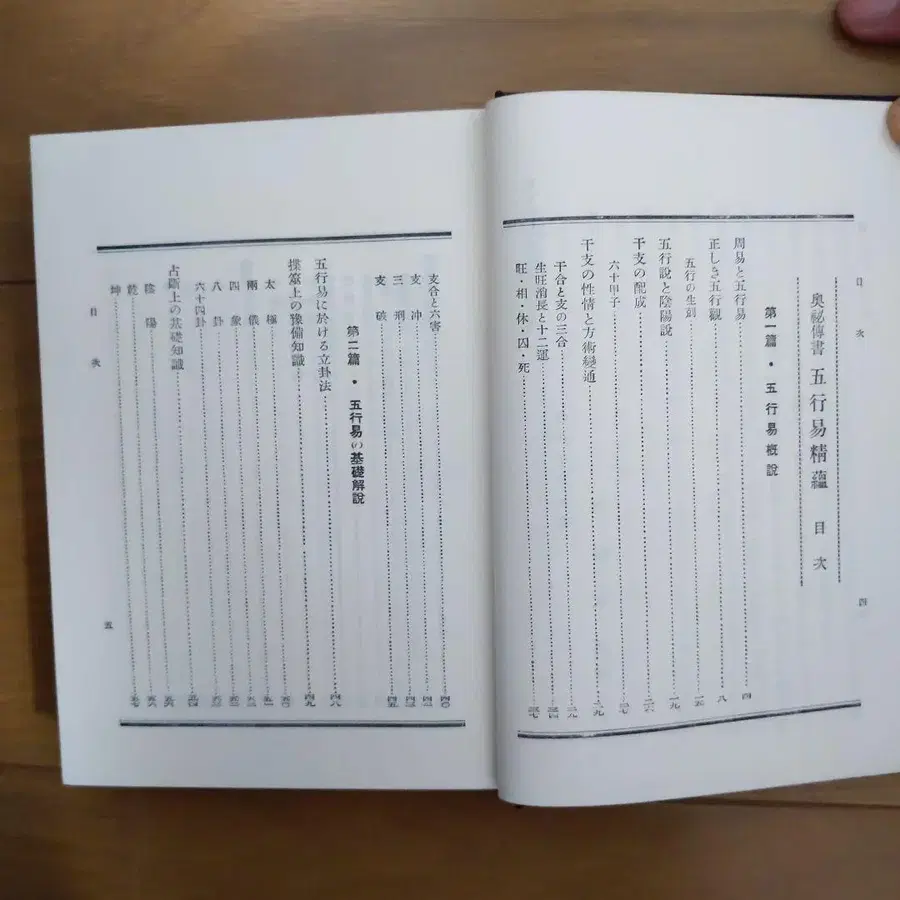 目次
奥祕傳書 五行易精蘊 目次
第一篇・五行易概說
周易と五行易……四
正しき五行觀……八
五行の生剋……一五
五行說と陰陽說……一九
干支の配成……二六
六十甲子……二七
干支の性情と方術變通……二九
干合と支の三合……
生旺消長と十二運……三四
旺・相・休・囚・死……三七
四
支合と六害……四〇
支沖……四二
三刑……四三
支破……四五
第二篇・五行易の基礎解說
五行易に於ける立卦法……四八
揲筮上の豫備知識……四九
太極……
兩儀……
四象……
八卦……
六十四卦……五四
占斷上の基礎知識……五六
陰陽……
乾……五七
坤……
目次
五